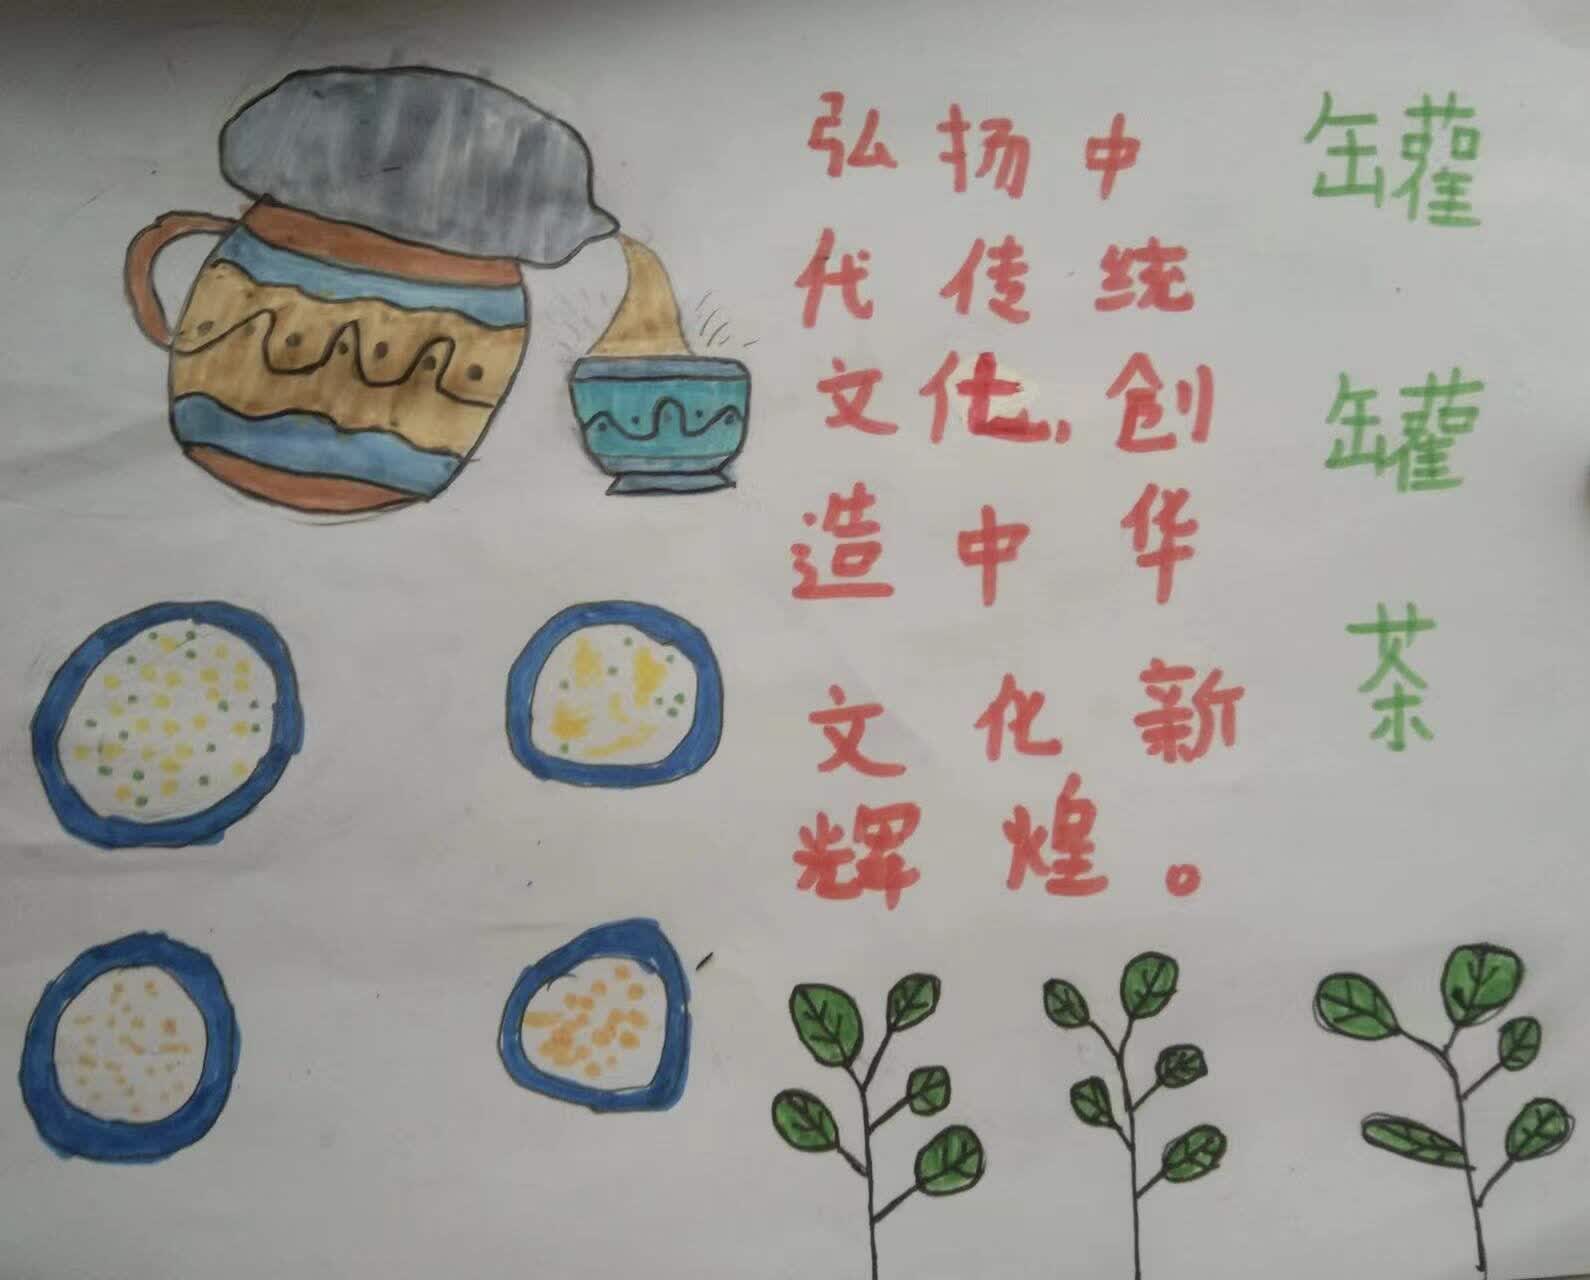 弘扬中
代传统
文化，创
造中华
文化新
辉煌。
罐罐茶